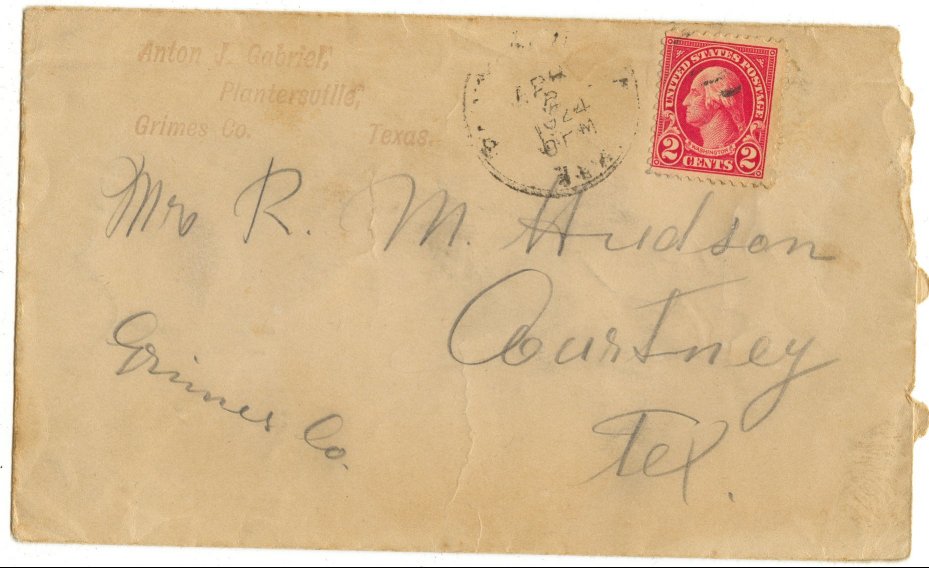 Anton J. Gabriel,
Plantersville,
Grimes Co. Texas.
UNITED STATES POSTAGE
WASHINGTON
2 CENTS 2
Mr R. M. Hudson
Courtney
Grimes Co.
Tex.